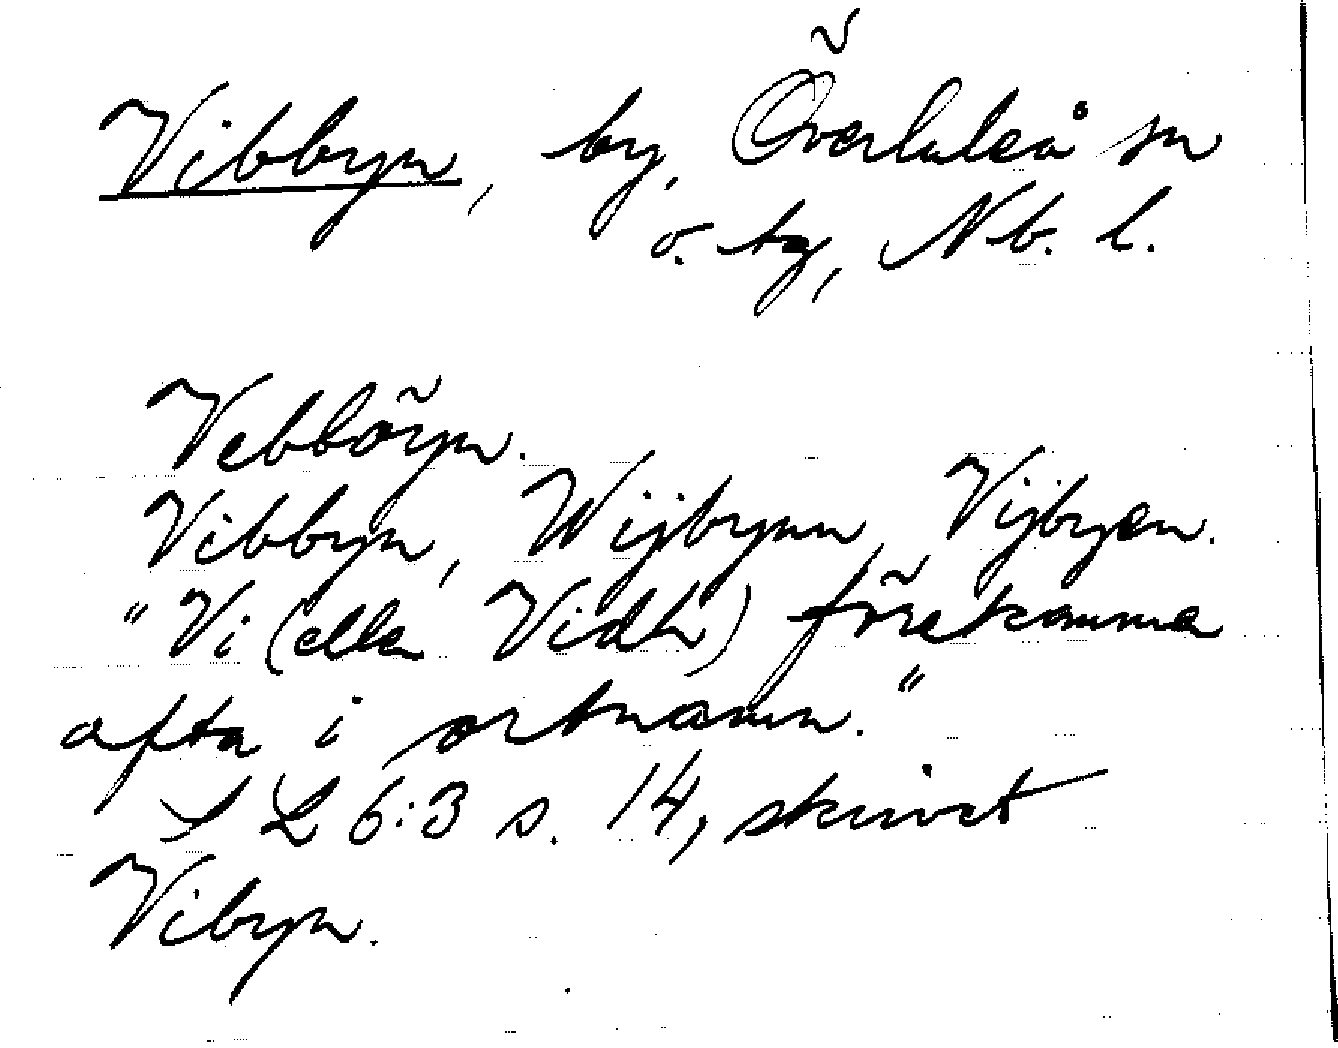 Vibbyn, by, Överluleå sn
o. tg, Nb. l.
Vebböyn.
Vibbyn, Wijbynn, Vijbyen.
"Vi (eller Vidh) förekomma
ofta i ortnamn."
S L 6:3 s. 14, skrivet
Vibyn.